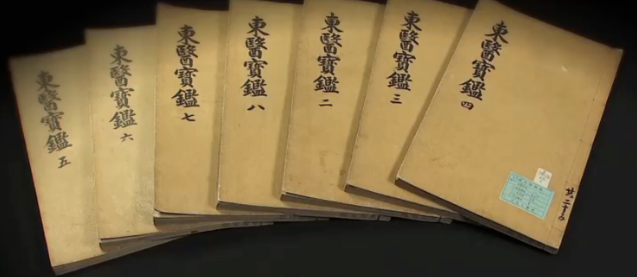 東醫寶鑑 五
東醫寶鑑 六
東醫寶鑑 七
東醫寶鑑 八
東醫寶鑑 二
東醫寶鑑 三
東醫寶鑑 四
共二十五